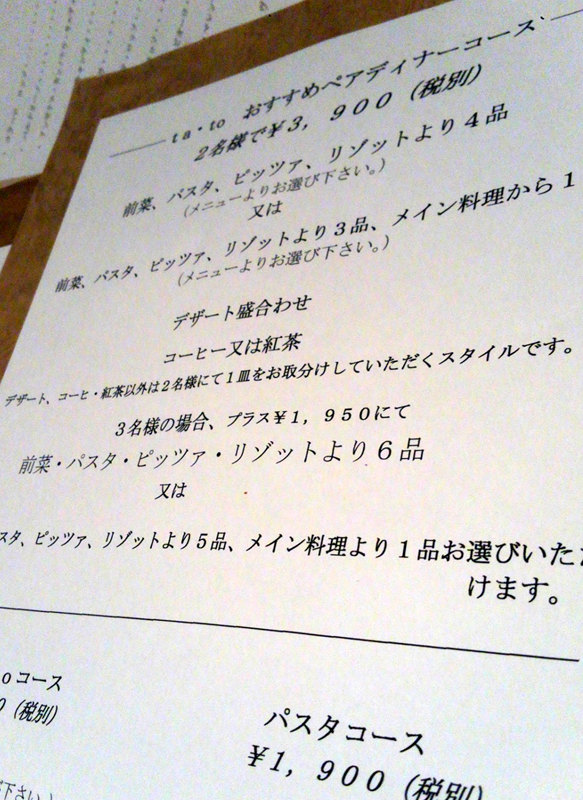 ta・to おすすめペアディナーコース
2名様で¥3,900(税別)
前菜、パスタ、ピッツァ、リゾットより4品
(メニューよりお選び下さい。)
又は
前菜、パスタ、ピッツァ、リゾットより3品、メイン料理から1
(メニューよりお選び下さい。)
デザート盛合わせ
コーヒー又は紅茶
デザート、コーヒ・紅茶以外は2名様にて1皿をお取分けしていただくスタイルです。
3名様の場合、プラス¥1,950にて
前菜・パスタ・ピッツァ・リゾットより6品
又は
スタ、ピッツァ、リゾットより5品、メイン料理より1品お選びいた
けます。
oコース
0(税別)
パスタコース
¥1,900(税別)
下さい。)